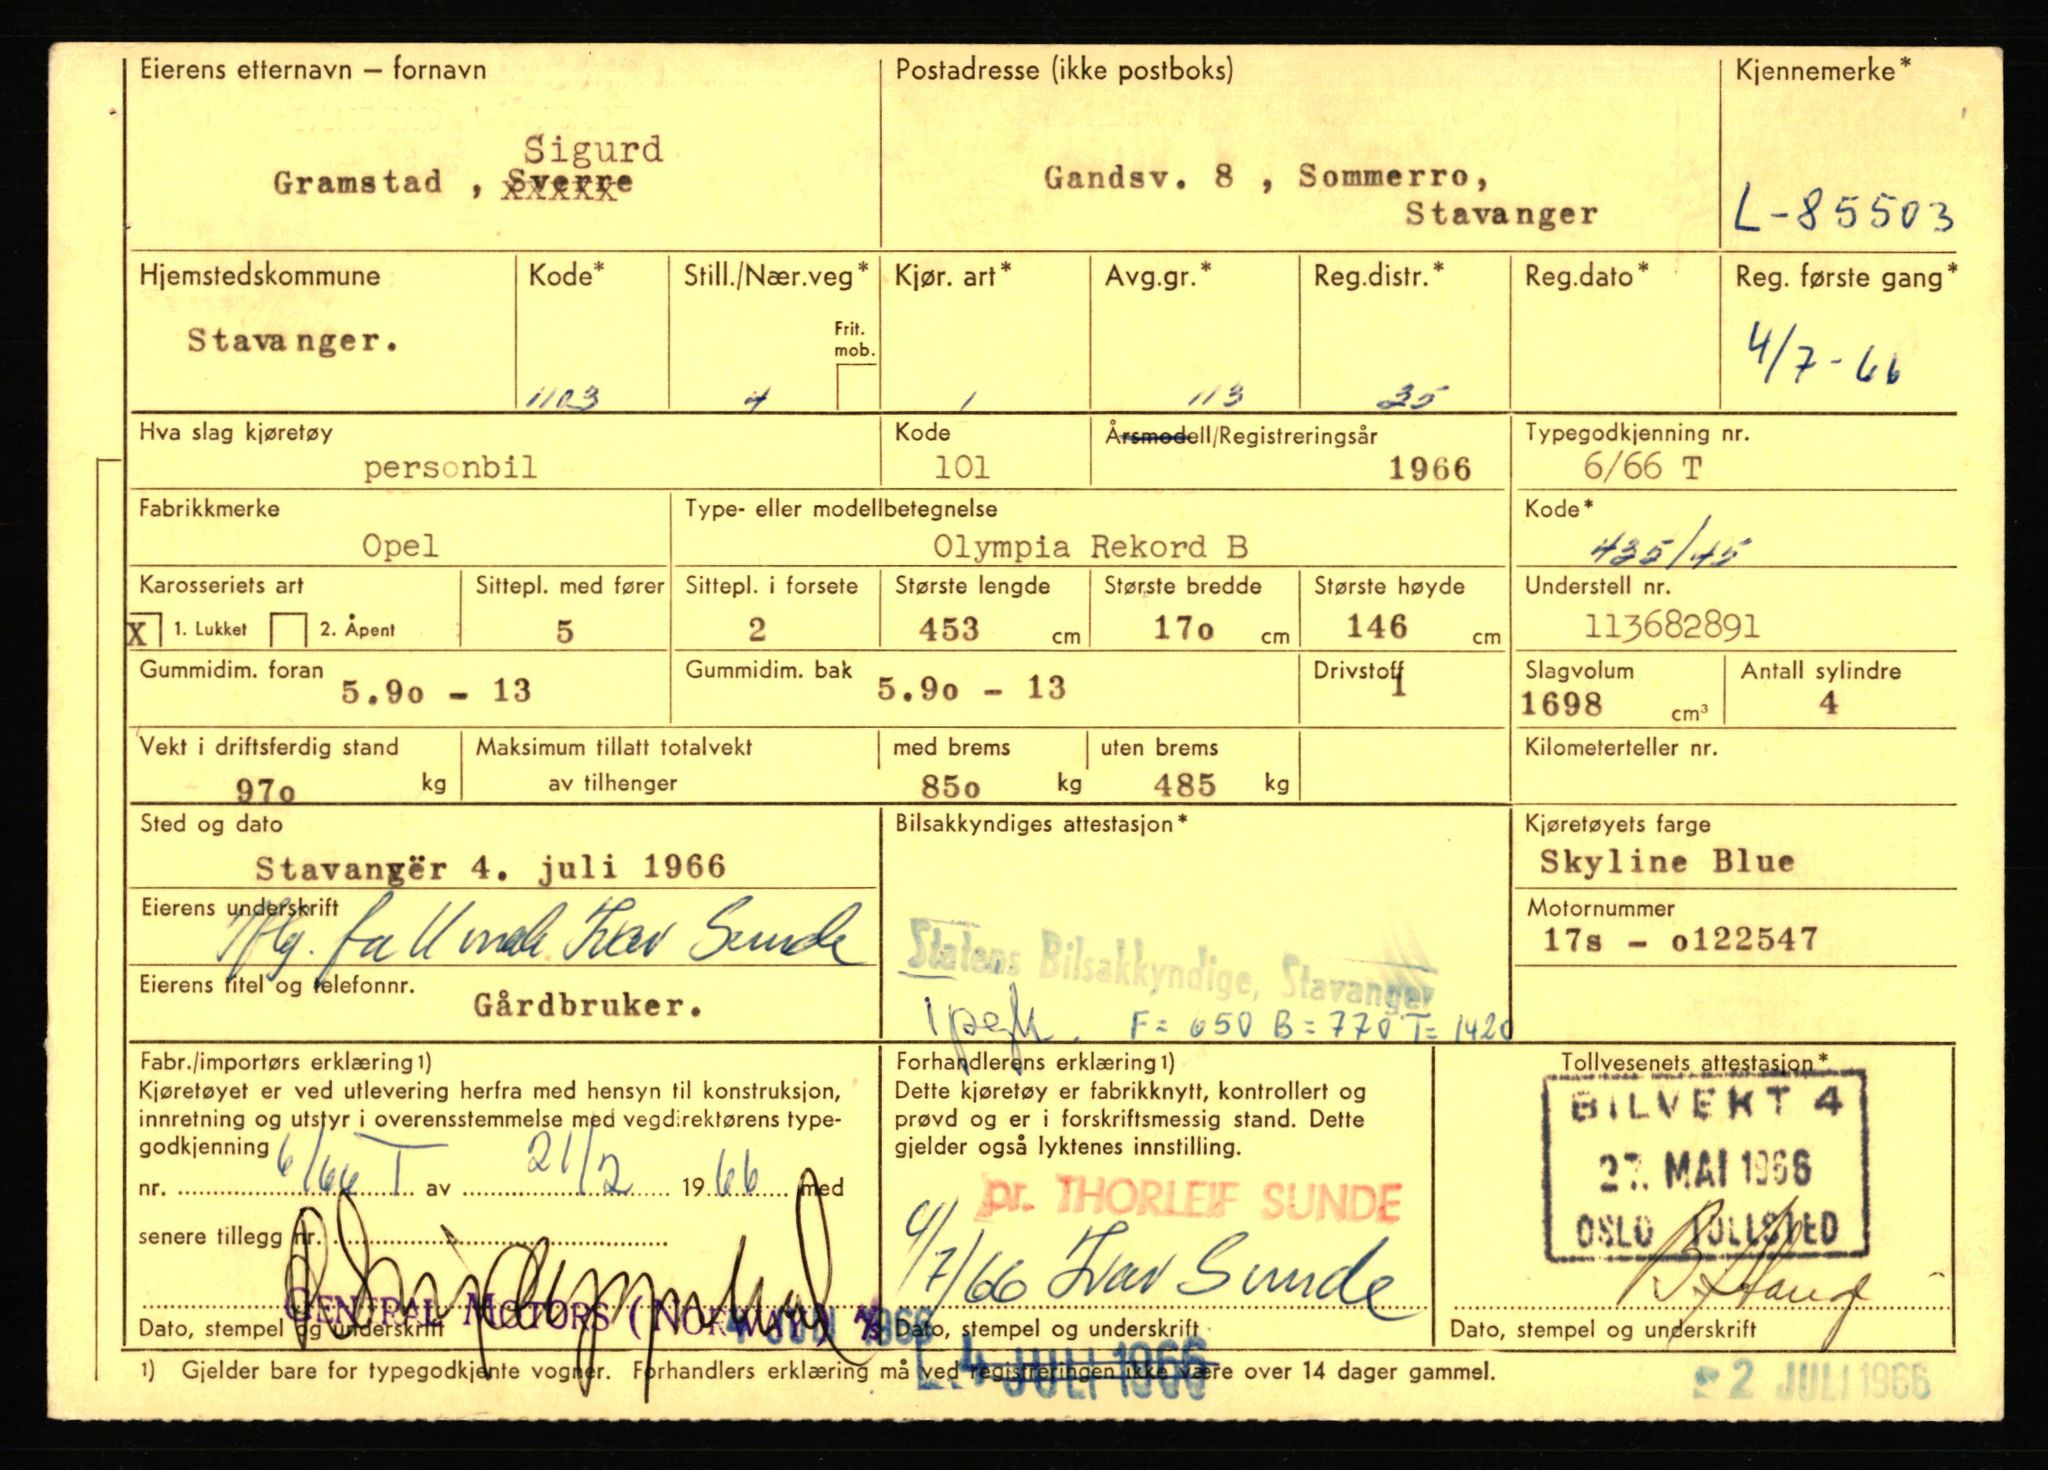 Eierens etternavn – fornavn
Sigurd
Gramstad , Sverre
Postadresse (ikke postboks)
Gandsv. 8 , Sommerro,
Stavanger
Kjennemerke*
L-85503
Hjemstedskommune
Stavanger.
Kode*
1103
Still./Nær.veg*
Frit.
mob.
4
Kjør. art*
1
Avg.gr.*
113
Reg.distr.*
25
Reg.dato*
Reg. første gang*
4/7-66
Hva slag kjøretøy
personbil
Kode
101
Årsmodell/Registreringsår
1966
Typegodkjenning nr.
6/66 T
Fabrikkmerke
Opel
Type- eller modellbetegnelse
Olympia Rekord B
Kode*
435/45
Karosseriets art
X 1. Lukket 2. Åpent
Sittepl. med fører
5
Sittepl. i forsete
2
Største lengde
453 cm
Største bredde
17o cm
Største høyde
146 cm
Understell nr.
113682891
Gummidim. foran
5.9o - 13
Gummidim. bak
5.9o - 13
Drivstoff
1
Slagvolum
1698 cm³
Antall sylindre
4
Vekt i driftsferdig stand
97o kg
Maksimum tillatt totalvekt
av tilhenger
med brems
85o kg
uten brems
485 kg
Kilometerteller nr.
Sted og dato
Stavangër 4. juli 1966
Eierens underskrift
Ivar Sunde
Eierens titel og telefonnr.
Gårdbruker.
Bilsakkyndiges attestasjon*
Statens Bilsakkyndige, Stavanger
F= 650 B=770 T= 1420
Kjøretøyets farge
Skyline Blue
Motornummer
17s - o122547
Fabr./importørs erklæring1)
Kjøretøyet er ved utlevering herfra med hensyn til konstruksjon,
innretning og utstyr i overensstemmelse med vegdirektørens type-
godkjenning
nr. 6/66 T av 21/2 1966 med
senere tillegg nr.
GENERAL MOTORS (NORWAY) A/S
Dato, stempel og underskrift
Forhandlerens erklæring1)
Dette kjøretøy er fabrikknytt, kontrollert og
prøvd og er i forskriftsmessig stand. Dette
gjelder også lyktenes innstilling.
pr. THORLEIF SUNDE
4/7/66 Ivar Sunde
Dato, stempel og underskrift
Tollvesenets attestasjon*
BILVEKT 4
27. MAI 1966
OSLO TOLLSTED
Dato, stempel og underskrift
1) Gjelder bare for typegodkjente vogner. Forhandlers erklæring må ved registreringen ikke være over 14 dager gammel.
L. 4 JULI 1966
22 JULI 1966